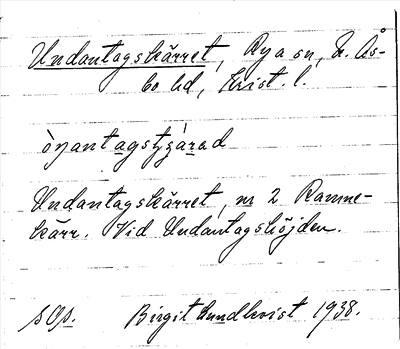 Undantagskärret, Rya sn, N. Ås-
bo hd, Krist. l.
Undantagskärret, nr 2 Ramne-
kärr. Vid Undantagshöjden.
sOp. Birgit Lundkvist 1938.